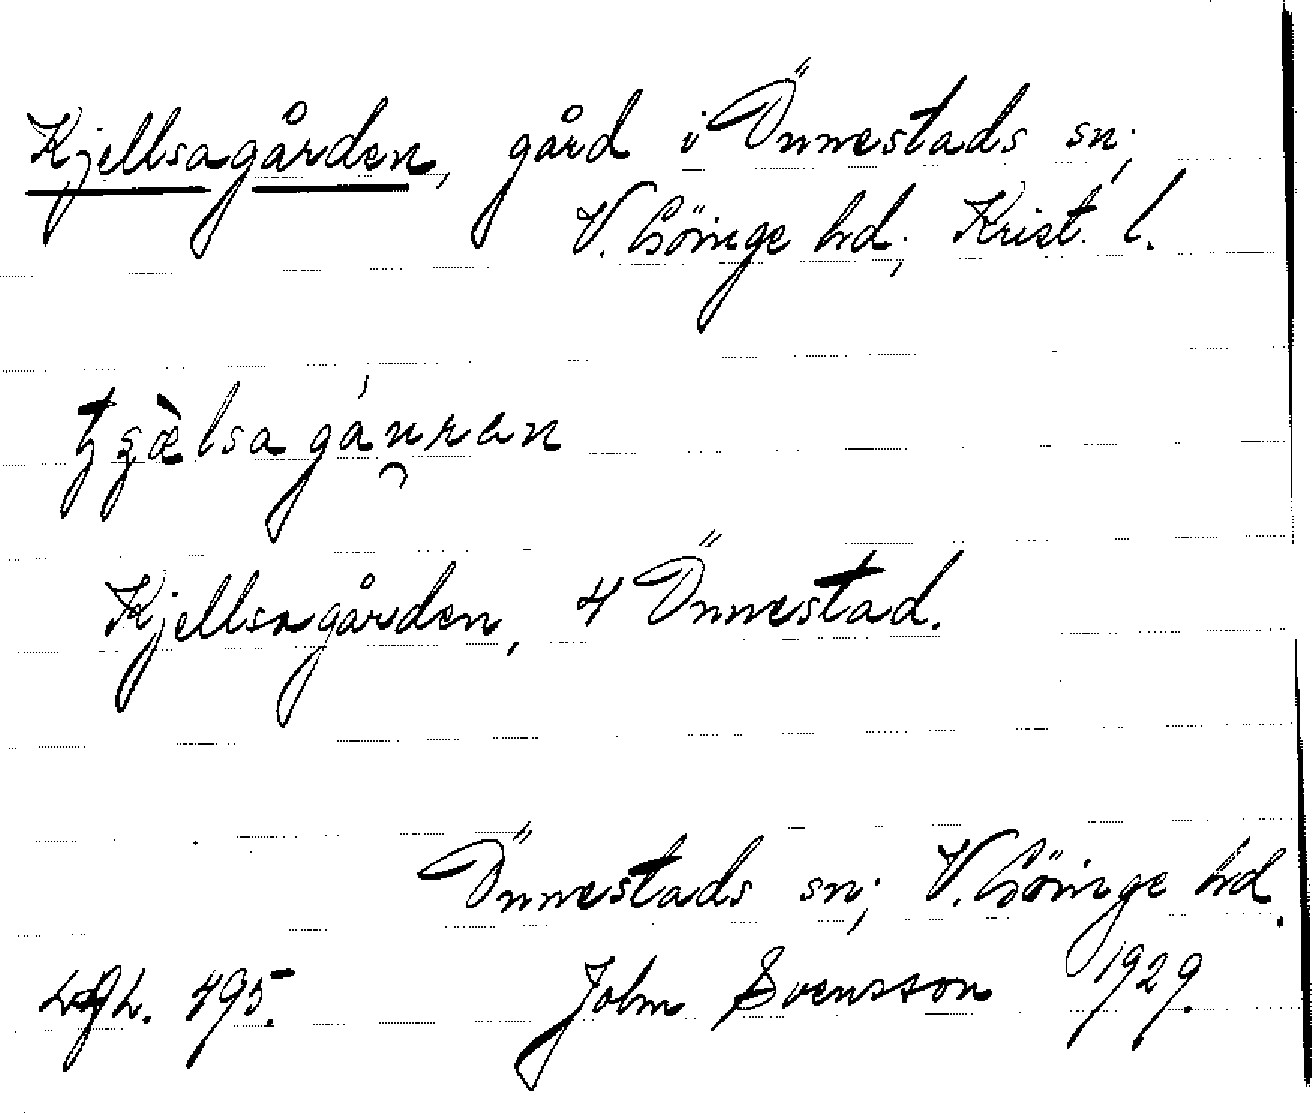 Kjellsagården, gård i Önnestads sn;
V. Göinge hd; Krist. l.
Kjellsagården, 4 Önnestad.
Önnestads sn; V. Göinge hd.
495. John Svensson 1929.